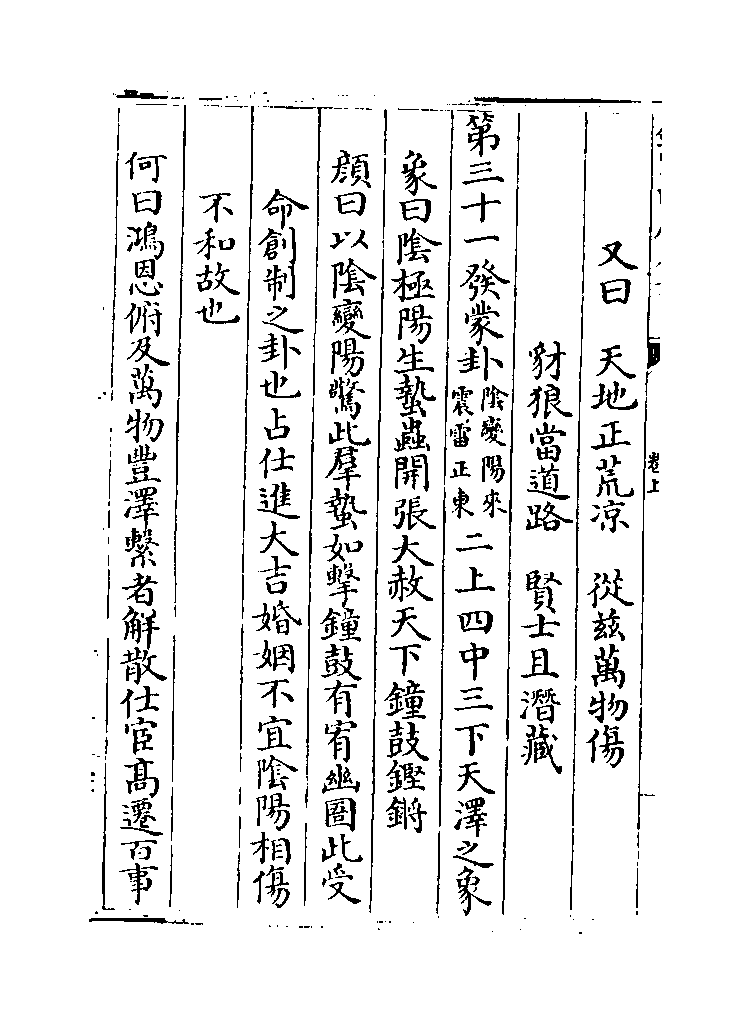 又曰　天地正荒凉　從兹萬物傷
豺狼當道路　賢士且潛藏
第三十一發蒙卦陰變陽來震雷正東二上四中三下天澤之象
象曰陰極陽生蟄蟲開張大赦天下鐘鼓鏗鏘
顔曰以陰變陽驚此羣蟄如擊鐘鼓有宥幽圄此受
命創制之卦也占仕進大吉婚姻不宜陰陽相傷
不和故也
何曰鴻恩俯及萬物豐澤繫者解散仕宦髙遷百事
卷上